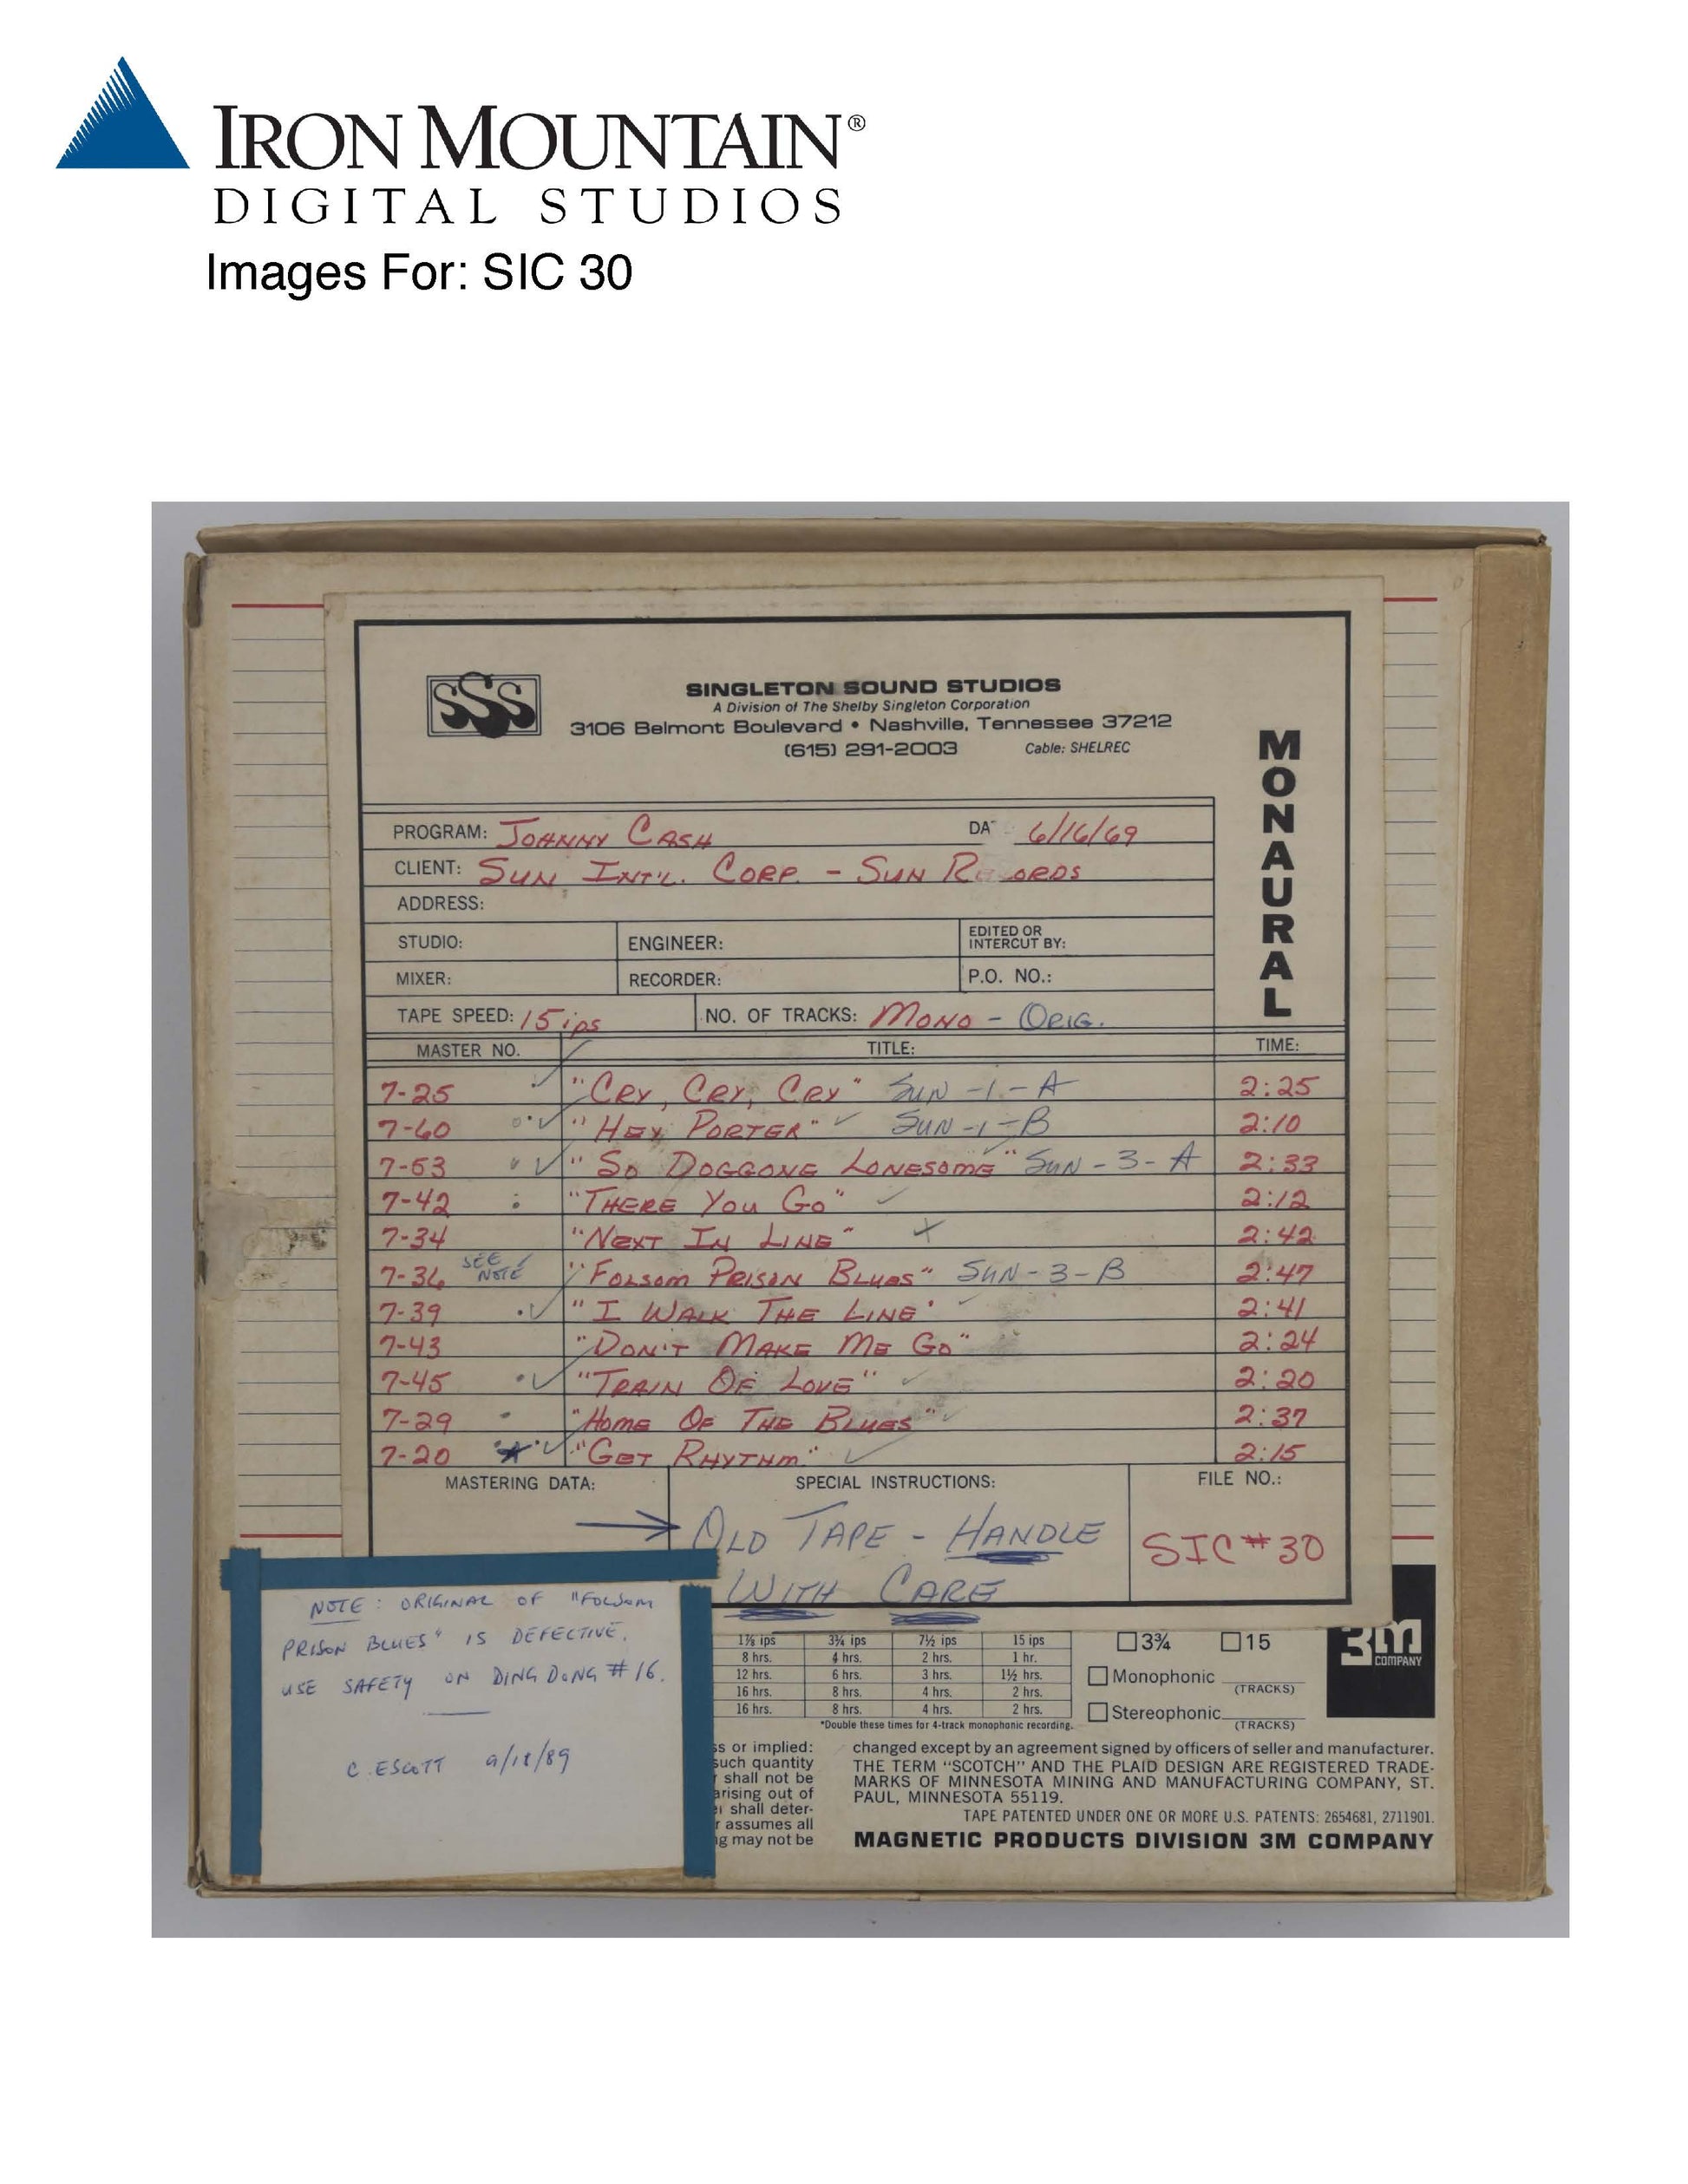 IRON MOUNTAIN®
DIGITAL STUDIOS
Images For: SIC 30
SSS
SINGLETON SOUND STUDIOS
A Division of The Shelby Singleton Corporation
3106 Belmont Boulevard • Nashville, Tennessee 37212
(615) 291-2003 Cable: SHELREC
MONAURAL
PROGRAM: JOHNNY CASH DA 6/16/69
CLIENT: SUN INT'L. CORP. - SUN RECORDS
ADDRESS:
STUDIO: ENGINEER: EDITED OR INTERCUT BY:
MIXER: RECORDER: P.O. NO.:
TAPE SPEED: 15 ips NO. OF TRACKS: MONO - ORIG.
MASTER NO. TITLE: TIME:
7-25 "CRY, CRY, CRY" SUN-1-A 2:25
7-60 "HEY PORTER" SUN-1-B 2:10
7-53 "SO DOGGONE LONESOME" SUN-3-A 2:33
7-42 "THERE YOU GO" 2:12
7-34 "NEXT IN LINE" 2:42
7-36 SEE NOTE "FOLSOM PRISON BLUES" SUN-3-B 2:47
7-39 "I WALK THE LINE" 2:41
7-43 "DON'T MAKE ME GO" 2:24
7-45 "TRAIN OF LOVE" 2:20
7-29 "HOME OF THE BLUES" 2:37
7-20 "GET RHYTHM" 2:15
MASTERING DATA: SPECIAL INSTRUCTIONS: FILE NO.:
OLD TAPE - HANDLE
WITH CARE
SIC #30
NOTE: ORIGINAL OF "FOLSOM
PRISON BLUES" IS DEFECTIVE.
USE SAFETY ON DING DONG #16.
C. ESCOTT 9/18/89
1⅞ ips 3¾ ips 7½ ips 15 ips
8 hrs. 4 hrs. 2 hrs. 1 hr.
12 hrs. 6 hrs. 3 hrs. 1½ hrs.
16 hrs. 8 hrs. 4 hrs. 2 hrs.
16 hrs. 8 hrs. 4 hrs. 2 hrs.
*Double these times for 4-track monophonic recording.
3¾ 15
Monophonic (TRACKS)
Stereophonic (TRACKS)
3M COMPANY
ss or implied:
such quantity
shall not be
arising out of
shall deter-
r assumes all
ng may not be
changed except by an agreement signed by officers of seller and manufacturer.
THE TERM "SCOTCH" AND THE PLAID DESIGN ARE REGISTERED TRADE-
MARKS OF MINNESOTA MINING AND MANUFACTURING COMPANY, ST.
PAUL, MINNESOTA 55119.
TAPE PATENTED UNDER ONE OR MORE U.S. PATENTS: 2654681, 2711901.
MAGNETIC PRODUCTS DIVISION 3M COMPANY